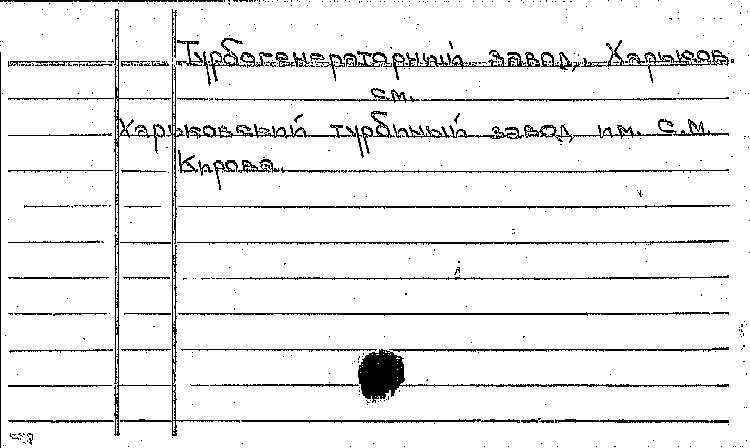 Турбогенераторный завод, Харьков.
см.
Харьковский турбинный завод им. С.М.
Кирова.